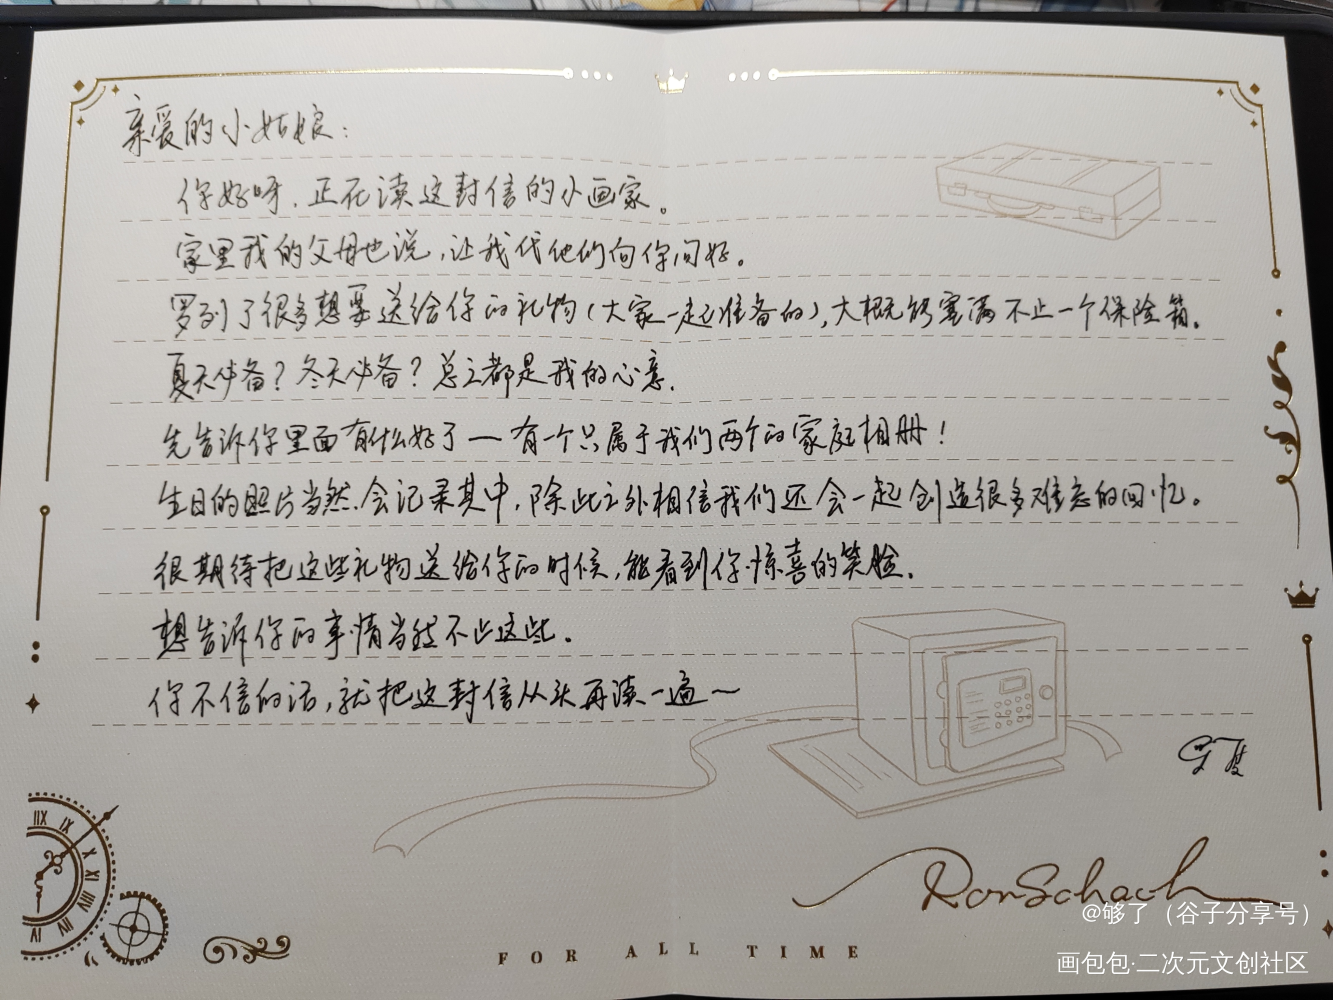 亲爱的小姑娘：
你好呀，正在读这封信的小画家。
家里我的父母也说，让我代他们向你问好。
罗列了很多想要送给你的礼物（大家一起准备的），大概能塞满不止一个保险箱。
夏天必备？冬天必备？总之都是我的心意。
先告诉你里面有什么好了——有一个只属于我们两个的家庭相册！
生日的照片当然会记录其中，除此之外相信我们还会一起创造很多难忘的回忆。
很期待把这些礼物送给你的时候，能看到你惊喜的笑脸。
想告诉你的事情当然不止这些。
你不信的话，就把这封信从头再读一遍～
RorSchach
FOR ALL TIME
@够了（谷子分享号）
画包包·二次元文创社区